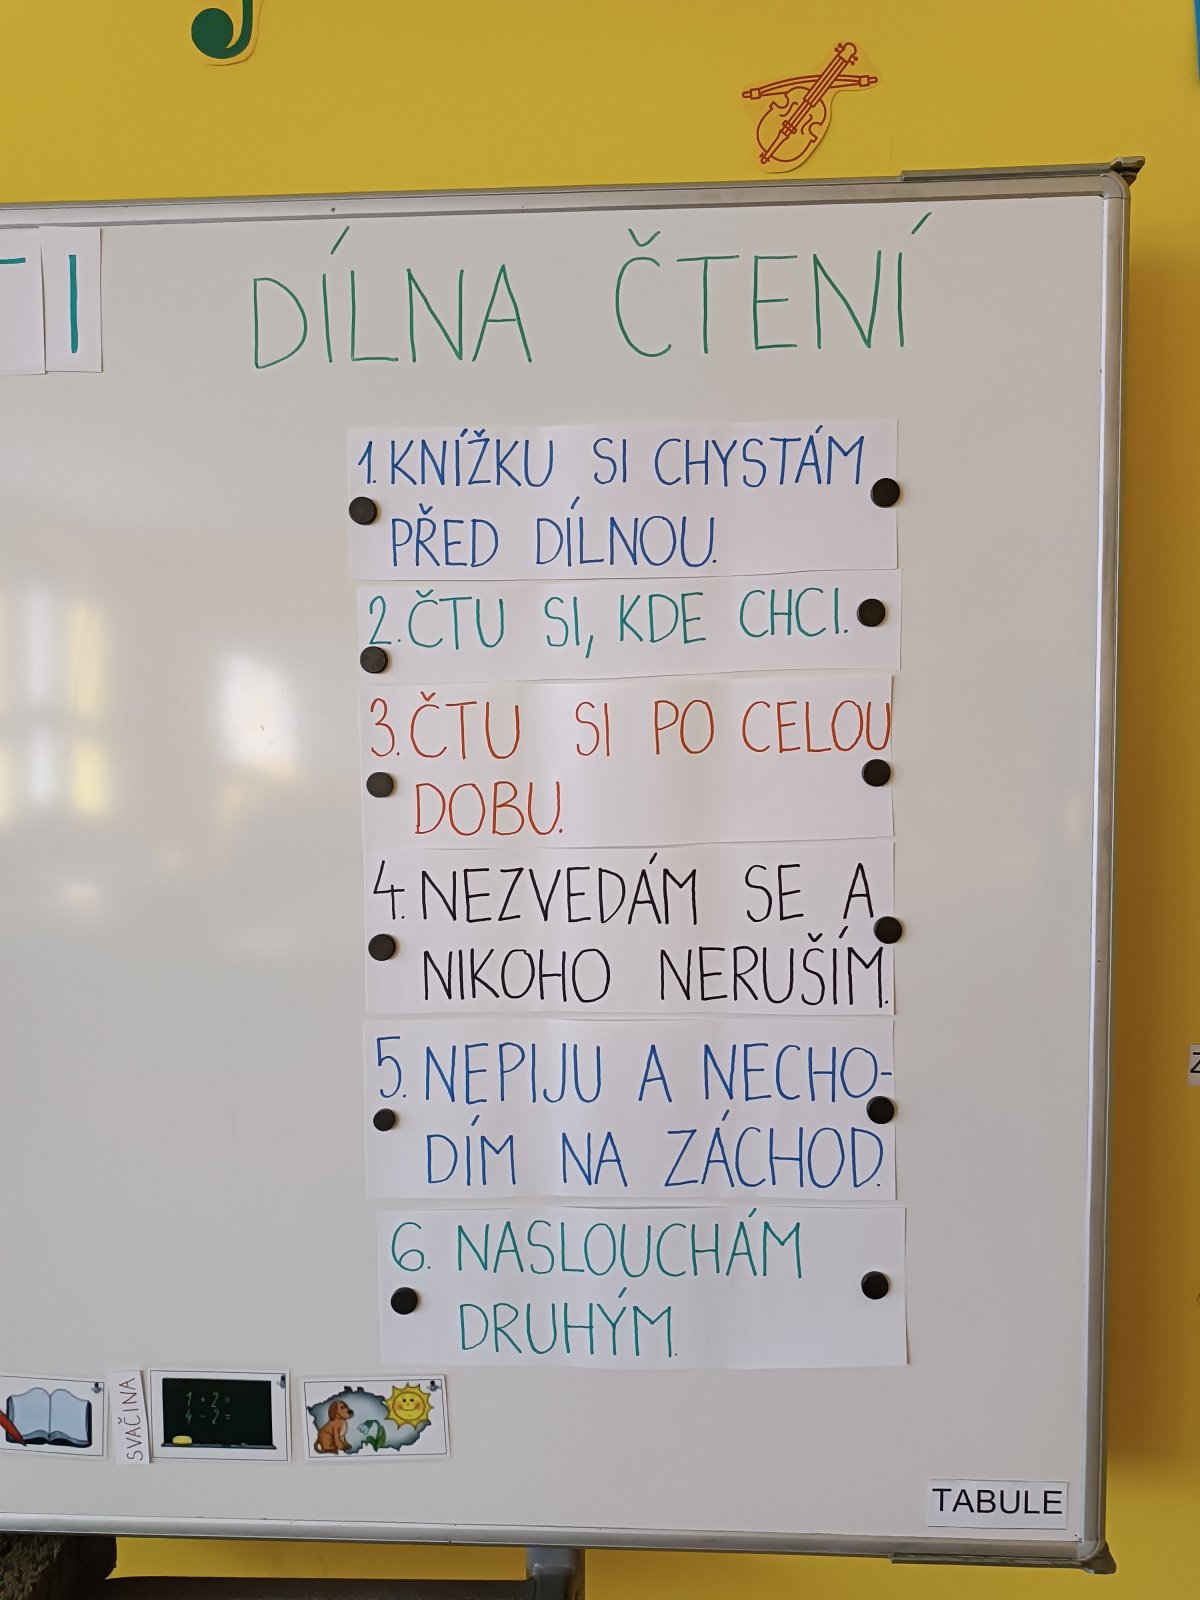 TI
DÍLNA ČTENÍ
1. KNÍŽKU SI CHYSTÁM
PŘED DÍLNOU.
2. ČTU SI, KDE CHCI.
3. ČTU SI PO CELOU
DOBU.
4. NEZVEDÁM SE A
NIKOHO NERUŠÍM.
5. NEPIJU A NECHO-
DÍM NA ZÁCHOD.
6. NASLOUCHÁM
DRUHÝM.
SVAČINA
1 + 2 =
4 - 2 =
TABULE